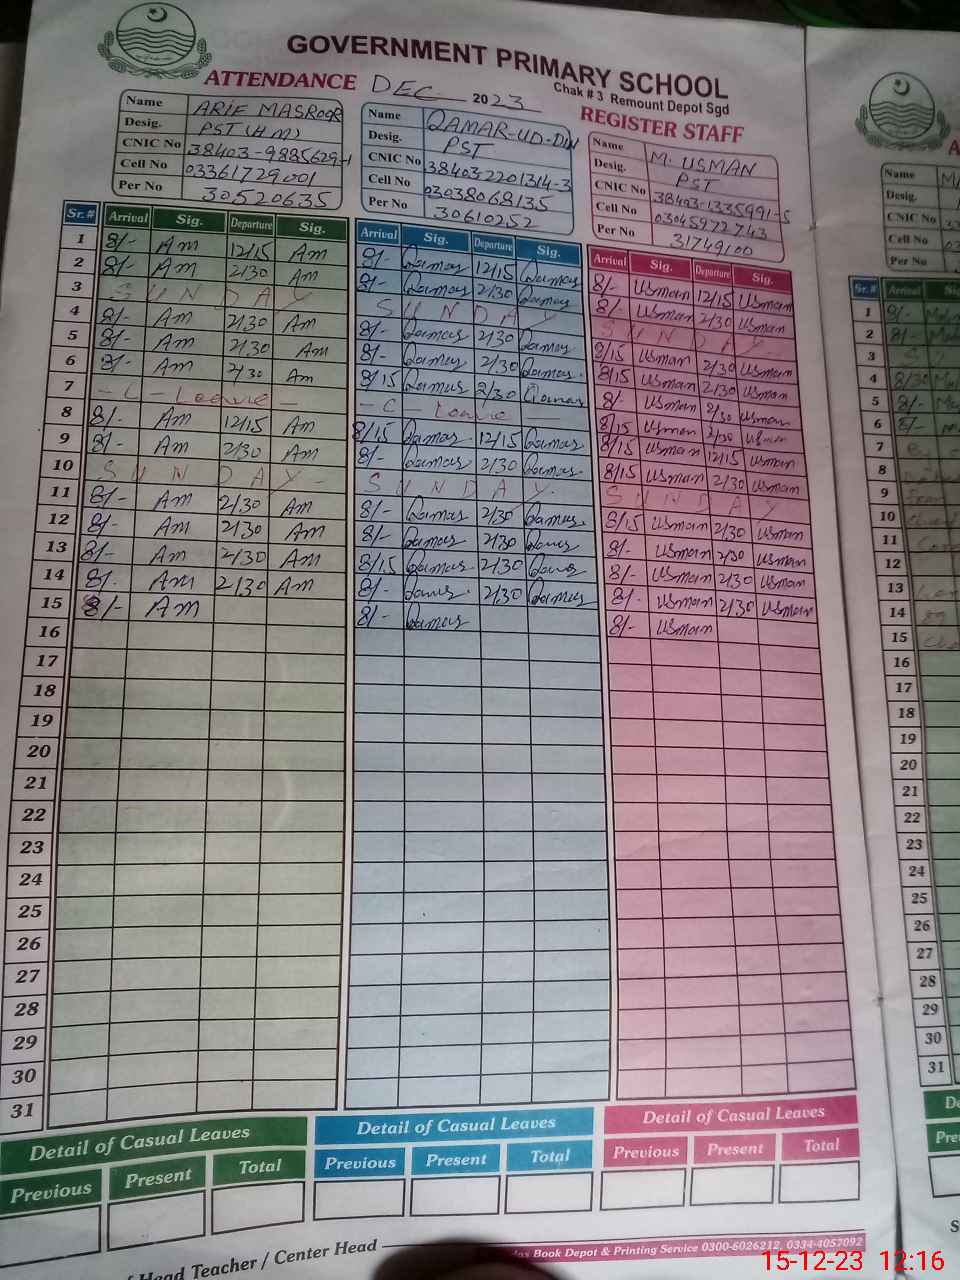 GOVERNMENT PRIMARY SCHOOL
Chak # 3 Remount Depot Sgd
ATTENDANCE DEC 2023 REGISTER STAFF
Name ARIF MASROOR
Desig. PST (H.M)
CNIC No 38403-9835629-1
Cell No 03361729001
Per No 30520635
Name QAMAR-UD-DIN
Desig. PST
CNIC No 38403-2201314-3
Cell No 03038068135
Per No 30610252
Name M. USMAN
Desig. PST
CNIC No 38403-1335991-5
Cell No 03045972743
Per No 31749100
Sr.# Arrival Sig. Departure Sig. Arrival Sig. Departure Sig. Arrival Sig. Departure Sig.
1 8/- Am 12/15 Am 8/- Qamar 12/15 Qamar 8/- Usman 12/15 Usman
2 8/- Am 2/30 Am 8/- Qamar 2/30 Qamar 8/- Usman 2/30 Usman
3 SUNDAY SUNDAY SUNDAY
4 8/- Am 2/30 Am 8/- Qamar 2/30 Qamar 8/15 Usman 2/30 Usman
5 8/- Am 2/30 Am 8/- Qamar 2/30 Qamar 8/15 Usman 2/30 Usman
6 8/- Am 2/30 Am 8/15 Qamar 2/30 Qamar 8/- Usman 2/30 Usman
7 - C - Leave - - C - Leave 8/15 Usman 2/30 Usman
8 8/- Am 12/15 Am 8/15 Qamar 12/15 Qamar 8/15 Usman 12/15 Usman
9 8/- Am 2/30 Am 8/- Qamar 2/30 Qamar 8/15 Usman 2/30 Usman
10 SUNDAY SUNDAY SUNDAY
11 8/- Am 2/30 Am 8/- Qamar 2/30 Qamar 8/15 Usman 2/30 Usman
12 8/- Am 2/30 Am 8/- Qamar 2/30 Qamar 8/- Usman 2/30 Usman
13 8/- Am 2/30 Am 8/15 Qamar 2/30 Qamar 8/- Usman 2/30 Usman
14 8/- Am 2/30 Am 8/- Qamar 2/30 Qamar 8/- Usman 2/30 Usman
15 8/- Am 8/- Qamar 8/- Usman
16
17
18
19
20
21
22
23
24
25
26
27
28
29
30
31
Detail of Casual Leaves Detail of Casual Leaves Detail of Casual Leaves
Previous Present Total Previous Present Total Previous Present Total
Head Teacher / Center Head
Book Depot & Printing Service 0300-6026212, 0334-4057092
Name
Desig.
CNIC No
Cell No
Per No
Sr.# Arrival
1 8/-
2 8/-
3
4 8/30
5 8/-
6 8/-
7
8
9
10
11
12
13
14
15
16
17
18
19
20
21
22
23
24
25
26
27
28
29
30
31
15-12-23 12:16